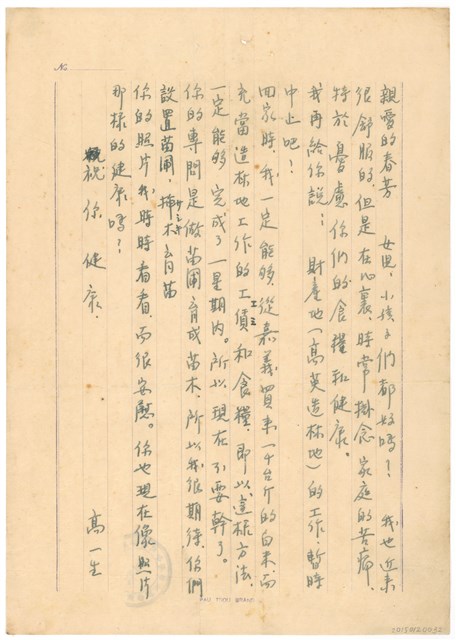 No
親愛的春芳　女思、小孩子們都好嗎？　我也近來
很舒服的、但是在心裏、時常掛念家庭的苦痛、
特於憂慮你們的食糧和健康。
我再給你說：　財產地（高英造林地）的工作、暫時
中止吧！
回家時、我一定能夠、從嘉義買來一千台斤的白米而
充當造林地工作的工債和食糧、即以這樣方法、
一定能夠完成了一星期內。所以、現在不要幹了。
你的專門是做苗圃育成苗木、所以我很期待你們
設置苗圃、插木育苗
你的照片我時時看看而很安慰。你也現在像照片
那樣的健康嗎？
祝　你　健　康．
高一生
2015M20052